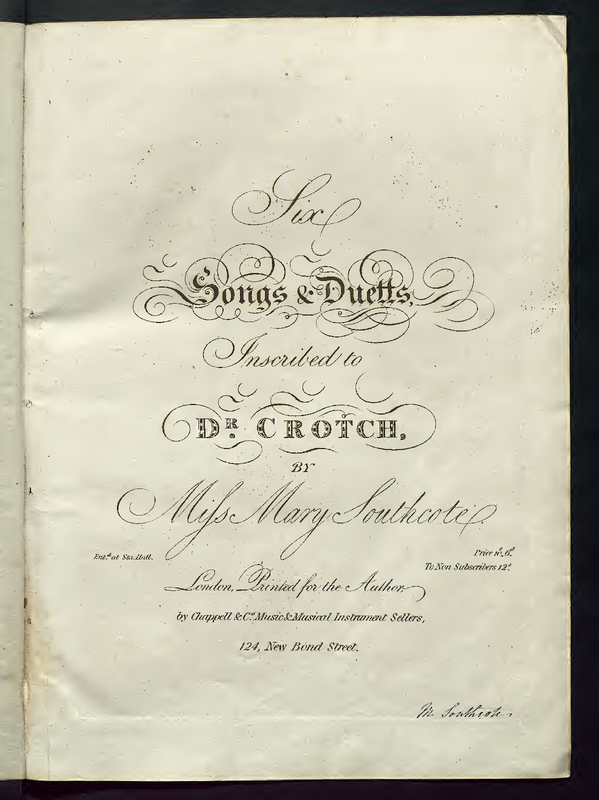 Six
Songs & Duetts,
Inscribed to
Dr. CROTCH,
BY
Miſs Mary Southcote
Entd. at Sta. Hall.
Price
To Non Subscribers 12s.
London, Printed for the Author,
by Chappell & Co. Music & Musical Instrument Sellers,
124, New Bond Street.
M. Southcote